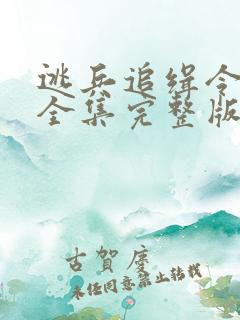 逃兵追缉令
全集完整版
古賀廈
未经同意禁止转载